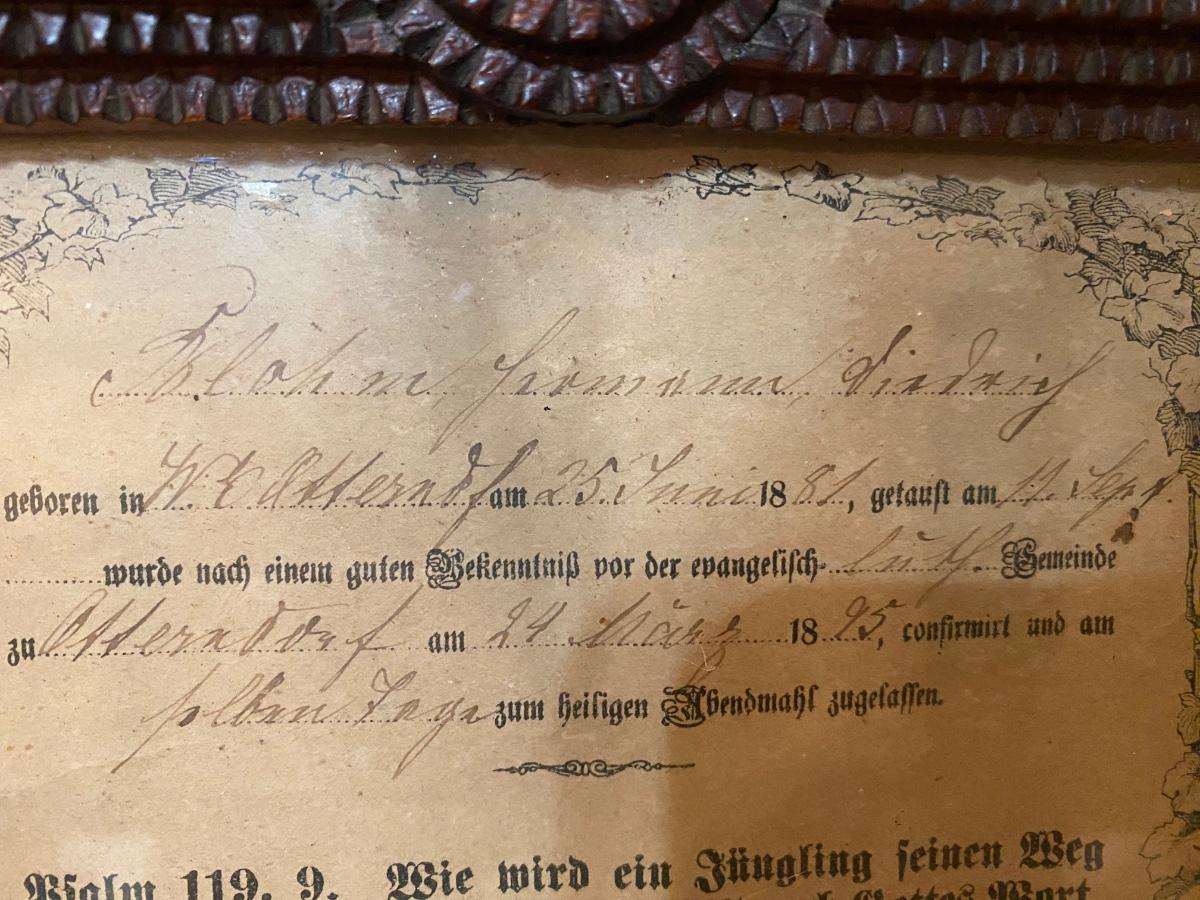 Blohm, Hermann, Diedrich
geboren in W. E. Otterndorf am 25 Juni 1881, getauft am 11. Sept.
wurde nach einem guten Bekenntniß vor der evangelisch-luth. Gemeinde
zu Otterndorf am 24 März 1895, confirmirt und am
selben Tage zum heiligen Abendmahl zugelassen.
Psalm 119. 9. Wie wird ein Jüngling seinen Weg
Gottes Wort